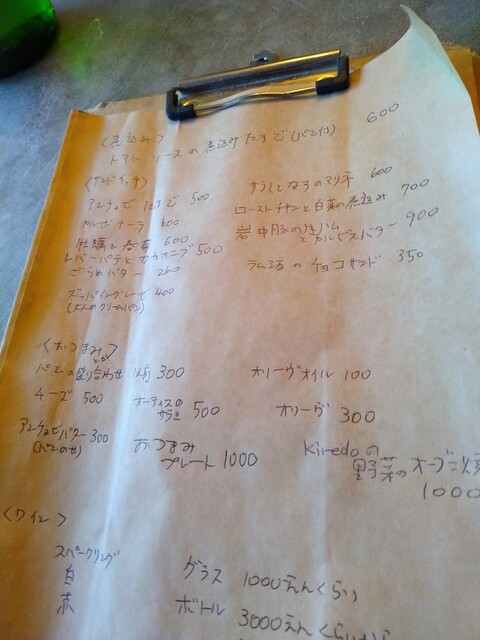 〈煮込み〉
トマトソースの煮込み (パン付) 600
〈サンドイッチ〉
アンチョビ たまご 500
カルボナーラ 600
牡蠣と春菊 600
レバーパテとカカオニブ 500
バター 260
400
(大人のクリームパン)
サラミとなすのマリネ 600
ローストチキンと白菜の煮込み 700
岩中豚の生ハム
とカルピスバター 900
ラム酒のチョコサンド 350
〈おつまみ〉
パンの盛り合わせ 300
チーズ 500
アンチョビバター 300
(パンのせ)
サラミ 500
おつまみ
プレート 1000
オリーヴオイル 100
オリーヴ 300
kiredoの
野菜のオーブン焼
1000
〈ワイン〉
スパークリング
白
赤
グラス 1000えんくらい
ボトル 3000えんくらい